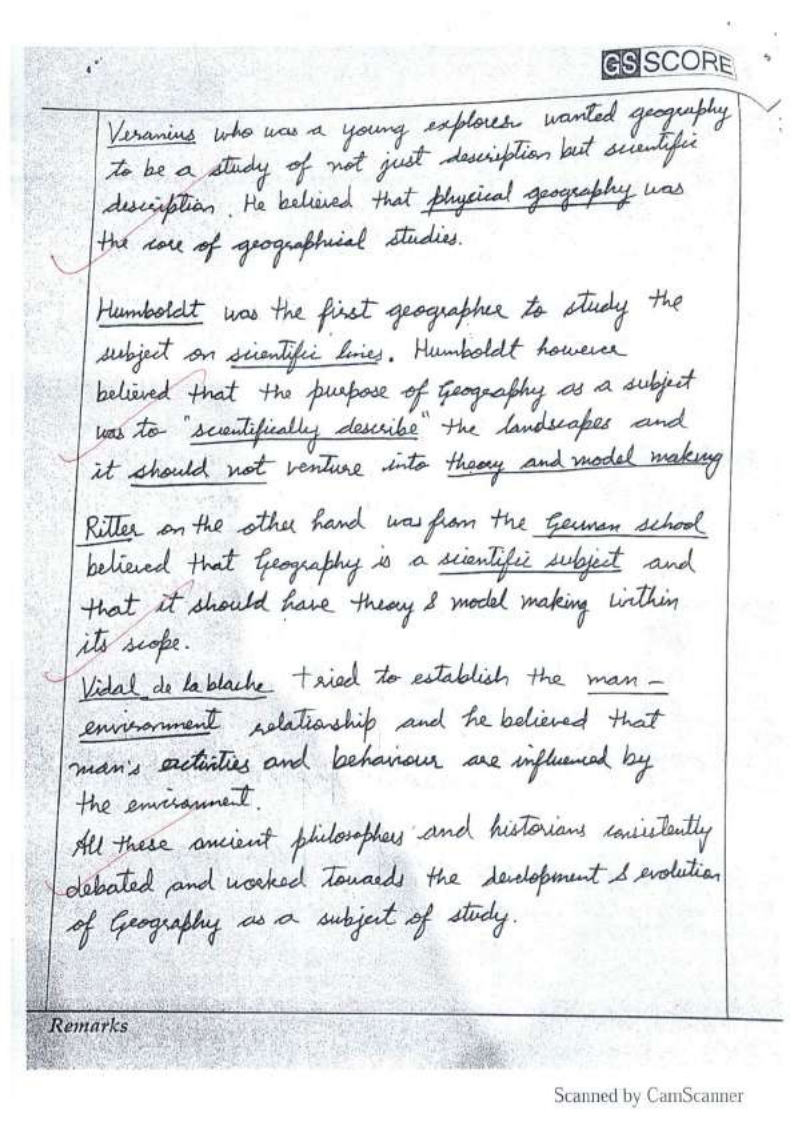 GS SCORE
Veranius who was a young explorer wanted geography
to be a study of not just description but scientific
description. He believed that physical geography was
the core of geographical studies.
Humboldt was the first geographer to study the
subject on scientific lines. Humboldt however
believed that the purpose of Geography as a subject
was to "scientifically describe" the landscapes and
it should not venture into theory and model making
Ritter on the other hand was from the German school
believed that Geography is a scientific subject and
that it should have theory & model making within
its scope.
Vidal de la blache tried to establish the man -
environment relationship and he believed that
man's activities and behaviour are influenced by
the environment.
All these ancient philosophers and historians consistently
debated and worked towards the development & evolution
of Geography as a subject of study.
Remarks
Scanned by CamScanner